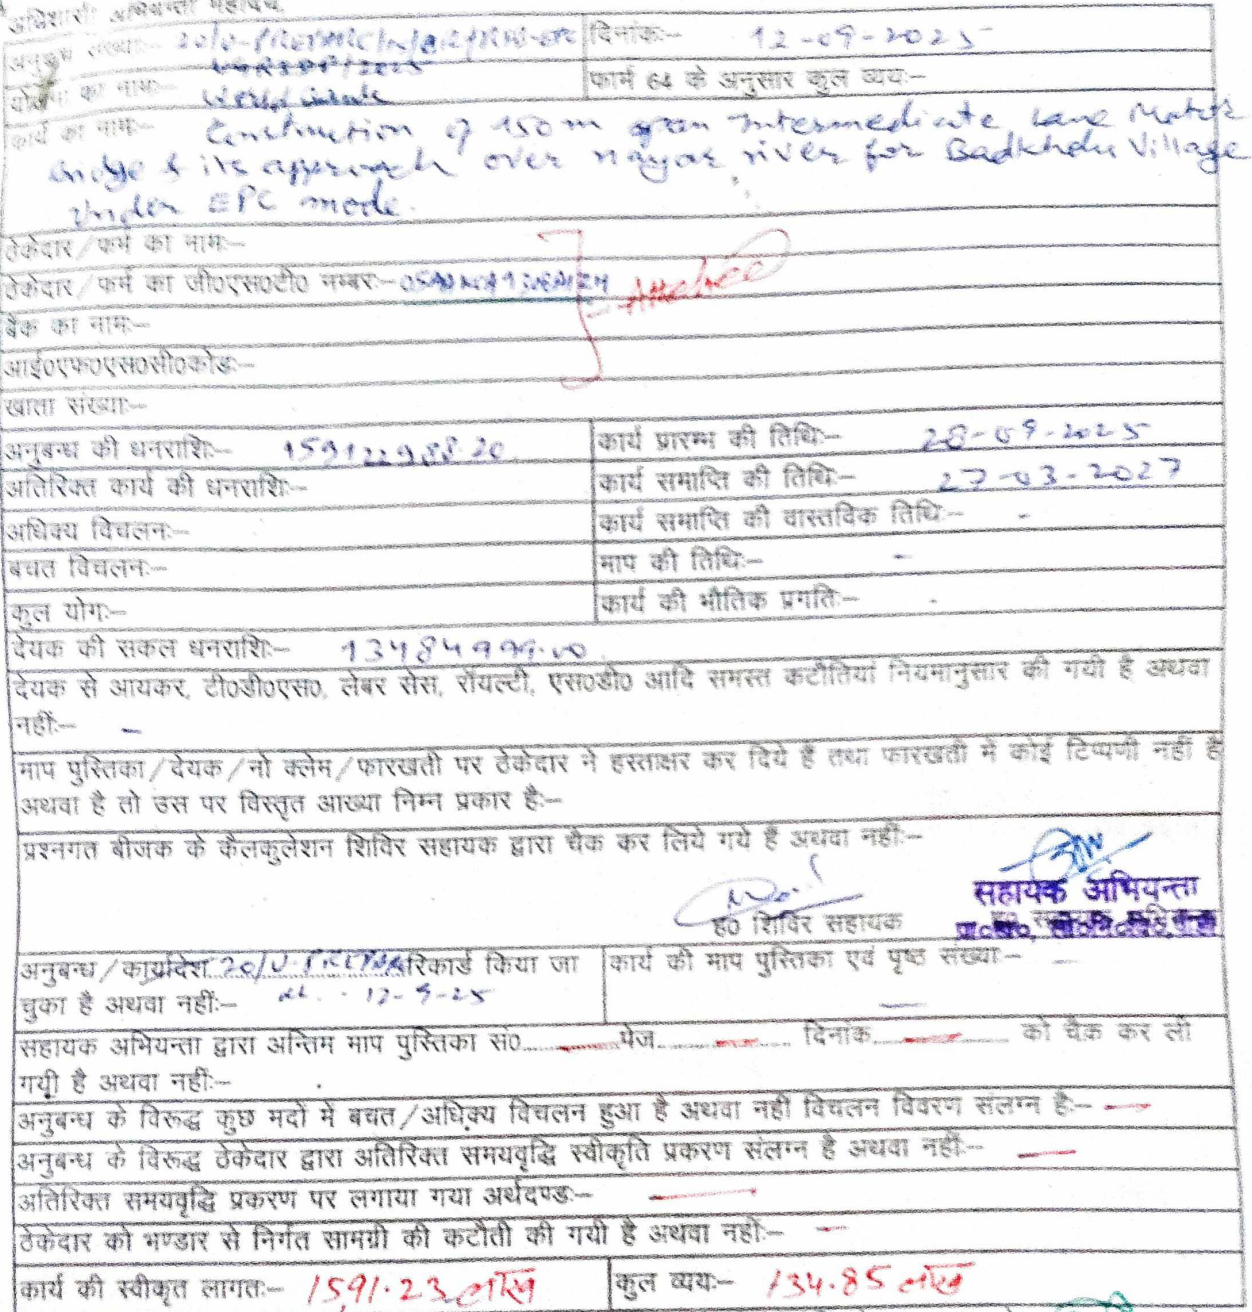 अधिशासी अभियन्ता महोदय,
अनुबन्ध संख्याः– दिनांकः– 12-09-2025
योजना का नामः– World Bank फार्म 64 के अनुसार कुल व्ययः–
कार्य का नामः– Construction of 150m span Intermediate Lane Motor
Bridge & its approach over nayar river for Badkholu Village
Under EPC mode.
ठेकेदार/फर्म का नामः–
ठेकेदार/फर्म का जी०एस०टी० नम्बरः– Attached
बैंक का नामः–
आई०एफ०एस०सी०कोडः–
खाता संख्याः–
अनुबन्ध की धनराशिः– 159122988.20 कार्य प्रारम्भ की तिथिः– 28-09-2025
अतिरिक्त कार्य की धनराशिः– कार्य समाप्ति की तिथिः– 27-03-2027
अधिक्य विचलनः– कार्य समाप्ति की वास्तविक तिथिः– -
बचत विचलनः– माप की तिथिः– -
कुल योगः– कार्य की भौतिक प्रगतिः– -
देयक की सकल धनराशिः– 13484999.00
देयक से आयकर, टी०डी०एस०, लेबर सेस, रॉयल्टी, एस०डी० आदि समस्त कटौतियां नियमानुसार की गयी है अथवा
नहींः– -
माप पुस्तिका/देयक/नो क्लेम/फारखती पर ठेकेदार ने हस्ताक्षर कर दिये हैं तथा फारखती में कोई टिप्पणी नहीं है
अथवा है तो उस पर विस्तृत आख्या निम्न प्रकार हैः–
प्रश्नगत बीजक के कैलकुलेशन शिविर सहायक द्वारा चैक कर लिये गये हैं अथवा नहींः–
सहायक अभियन्ता
ह० शिविर सहायक
अनुबन्ध/कार्यादेश 20/U- रिकार्ड किया जा कार्य की माप पुस्तिका एवं पृष्ठ संख्याः– -
चुका है अथवा नहींः– 12-9-25 -
सहायक अभियन्ता द्वारा अन्तिम माप पुस्तिका सं०......–......पेज......–...... दिनांक......–...... को चैक कर ली
गयी है अथवा नहींः–
अनुबन्ध के विरूद्ध कुछ मदों में बचत/अधिक्य विचलन हुआ है अथवा नहीं विचलन विवरण संलग्न हैः– -
अनुबन्ध के विरूद्ध ठेकेदार द्वारा अतिरिक्त समयवृद्धि स्वीकृति प्रकरण संलग्न है अथवा नहींः– -
अतिरिक्त समयवृद्धि प्रकरण पर लगाया गया अर्थदण्डः– -
ठेकेदार को भण्डार से निर्गत सामग्री की कटौती की गयी है अथवा नहींः– -
कार्य की स्वीकृत लागतः– 1591.23 लाख कुल व्ययः– 134.85 लाख